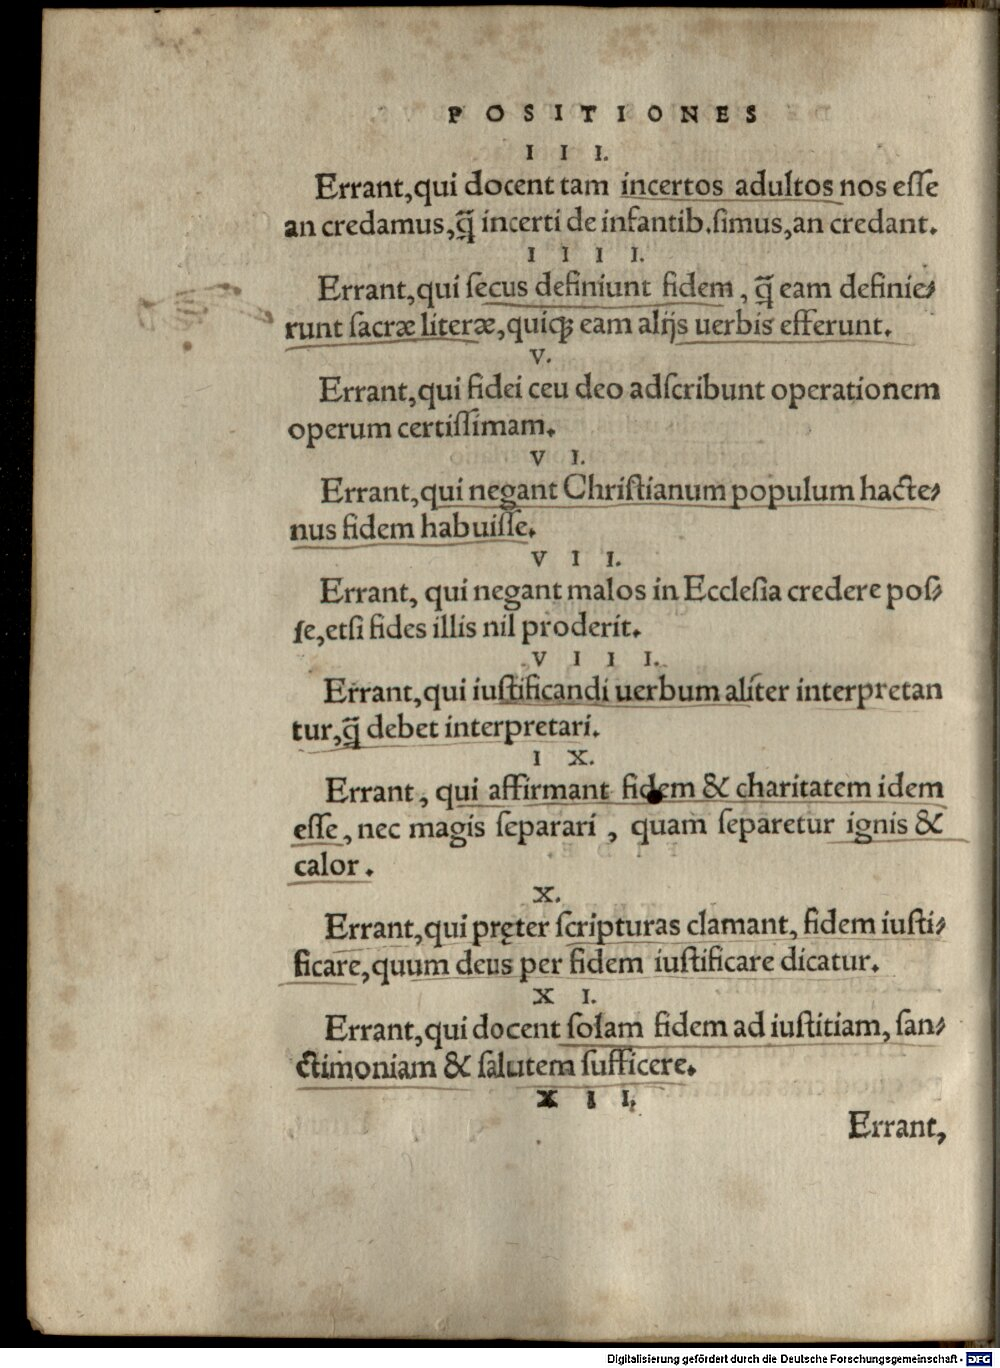 POSITIONES
III.
Errant, qui docent tam incertos adultos nos eſſe
an credamus, q̃ incerti de infantib. ſimus, an credant.
IIII.
Errant, qui ſecus definiunt fidem, q̃ eam definie⸗
runt ſacræ literæ, quiqꝫ eam alijs uerbis efferunt.
V.
Errant, qui fidei ceu deo adſcribunt operationem
operum certiſſimam.
VI.
Errant, qui negant Chriſtianum populum hacte⸗
nus fidem habuiſſe.
VII.
Errant, qui negant malos in Eccleſia credere poſ⸗
ſe, etſi fides illis nil proderit.
VIII.
Errant, qui iuſtificandi uerbum aliter interpretan
tur, q̃ debet interpretari.
IX.
Errant, qui affirmant fidem & charitatem idem
eſſe, nec magis ſeparari, quam ſeparetur ignis &
calor.
X.
Errant, qui pręter ſcripturas clamant, fidem iuſti⸗
ficare, quum deus per fidem iuſtificare dicatur.
XI.
Errant, qui docent ſolam fidem ad iuſtitiam, ſan⸗
ctimoniam & ſalutem ſufficere.
XII.
Errant,
Digitalisierung gefördert durch die Deutsche Forschungsgemeinschaft - DFG